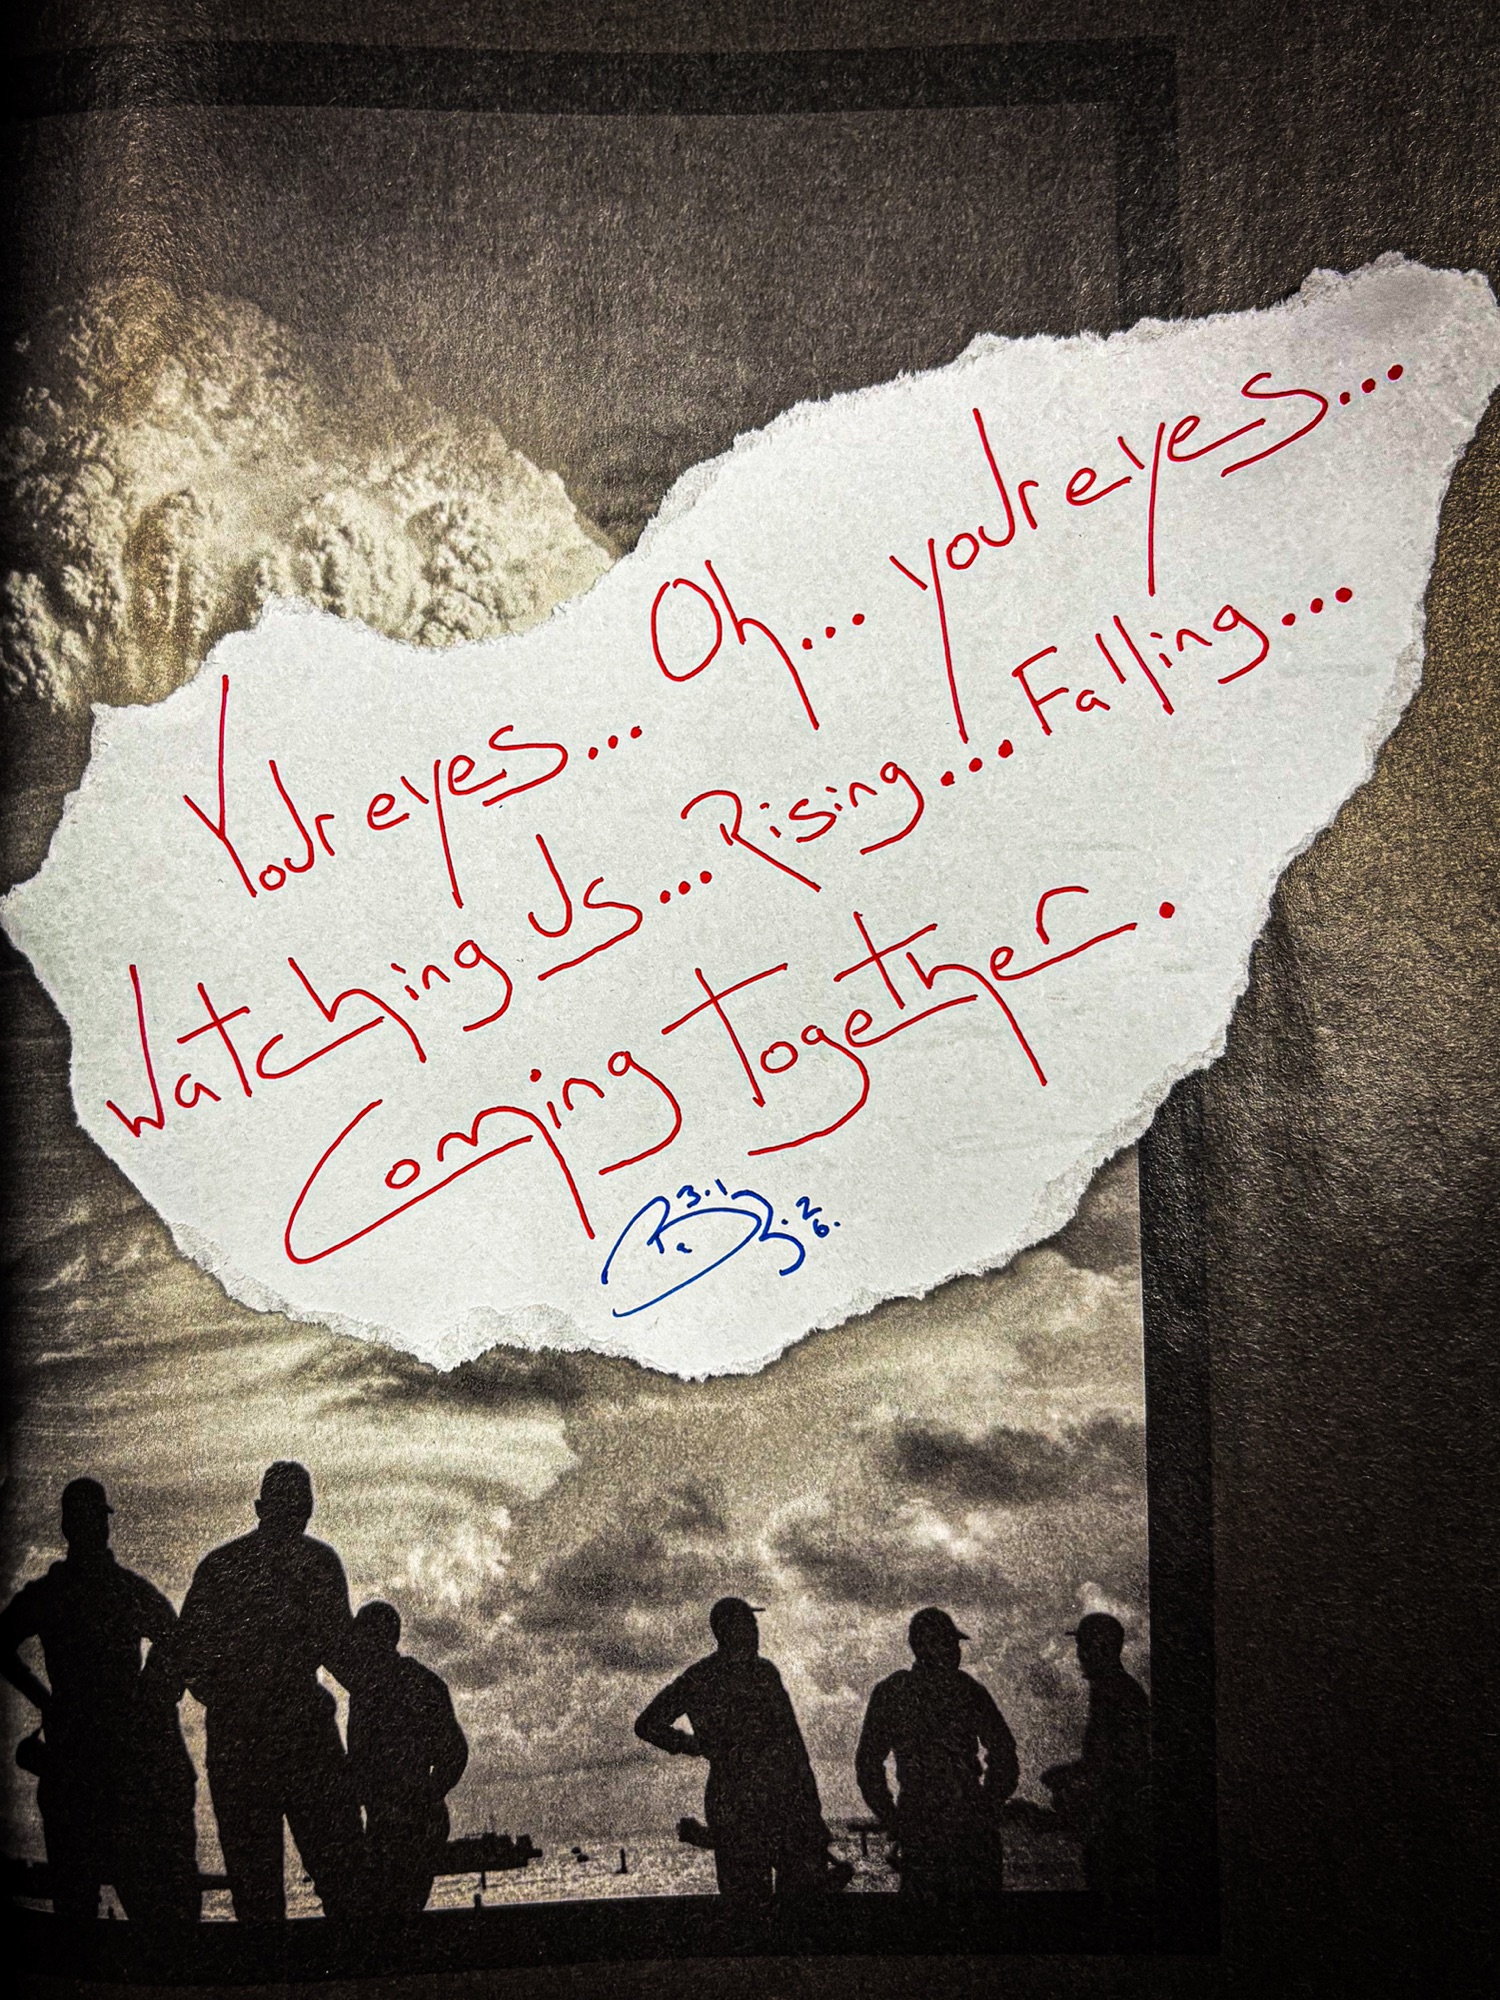 Your eyes... Oh... your eyes...
Watching Us... Rising... Falling...
Coming Together.
3.1
2
6.